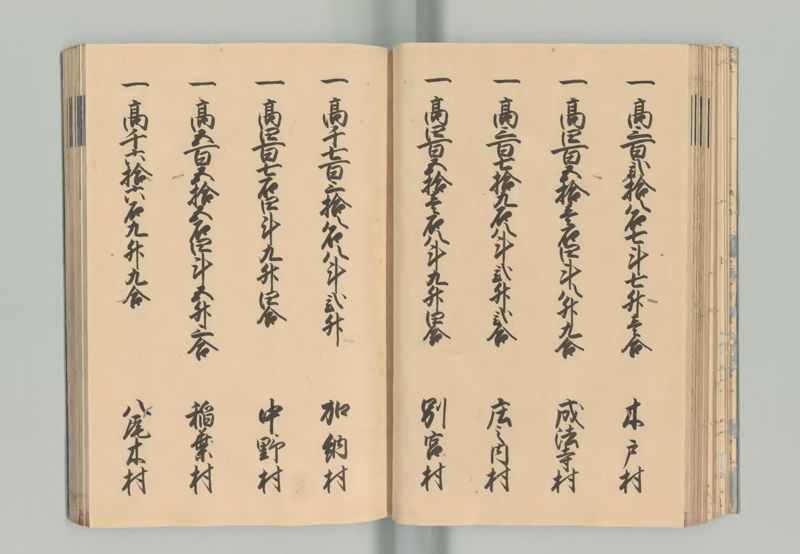 一 高三百弐拾八石七斗七升壱合 木戸村
一 高四百五拾壱石四斗八升九合 成法寺村
一 高三百七拾九石八斗弐升弐合 庄之内村
一 高四百五拾壱石八斗九升四合 別宮村
一 高千七百三拾八石八斗弐升 加納村
一 高四百七石四斗九升四合 中野村
一 高五百五拾五石四斗五升三合 稲葉村
一 高千六拾六石九升九合 八尾木村